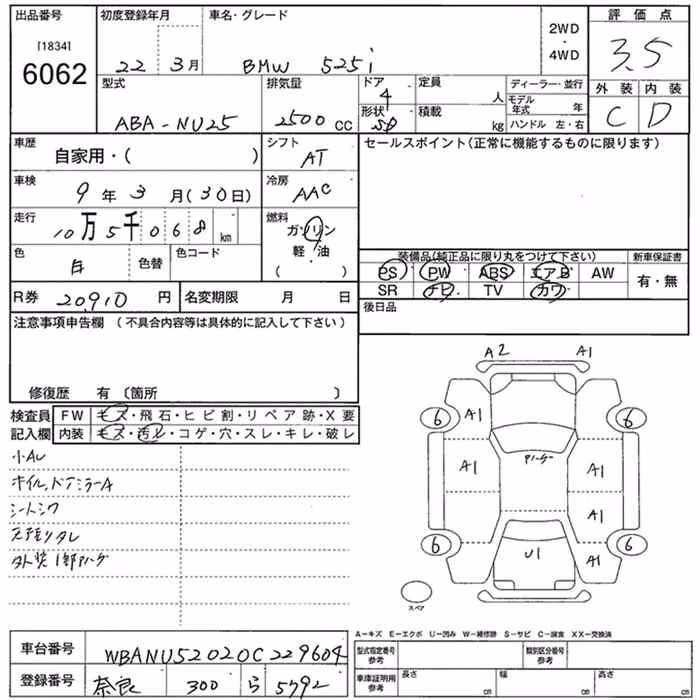 出品番号 初度登録年月 車名・グレード 2WD・4WD 評価点
[1834] 6062 22年 3月 BMW 525i 3.5
型式 排気量 ドア 定員 ディーラー・並行 外装 内装
ABA-NU25 2500 CC 4 人 モデル年式 年 C D
形状 積載 kg ハンドル 左・右
車歴 自家用・( ) シフト AT セールスポイント(正常に機能するものに限ります)
車検 9年 3月(30日) 冷房 AAC
走行 10万5千068km 燃料 ガソリン 軽・油 ( )
色 白 色替 色コード
装備品(純正品に限り丸をつけて下さい) 新車保証書
PS PW ABS エアB AW 有・無
SR ナビ TV カワ
R券 20,910 円 名変期限 月 日 後日品
注意事項申告欄 (不具合内容等は具体的に記入して下さい)
修復歴 有 〔箇所 〕
検査員記入欄 FW キズ・飛石・ヒビ割・リペア跡・X要
内装 キズ・汚レ・コゲ・穴・スレ・キレ・破レ
小AU
ホイル,ドアミラーA
シートシワ
天張りタレ
外装1部ハゲ
A2 A1
6 A1 6
A1 A1
A1
6 U1 A1 6
スペア
A-キズ E-エクボ U-凹み W-補修跡 S-サビ C-腐食 XX-交換済
車台番号 WBANU52020C229604
登録番号 奈良 300 ら 5792
型式指定番号 参考 類別区分番号 参考
車庫証明用 参考 長さ cm 幅 cm 高さ cm